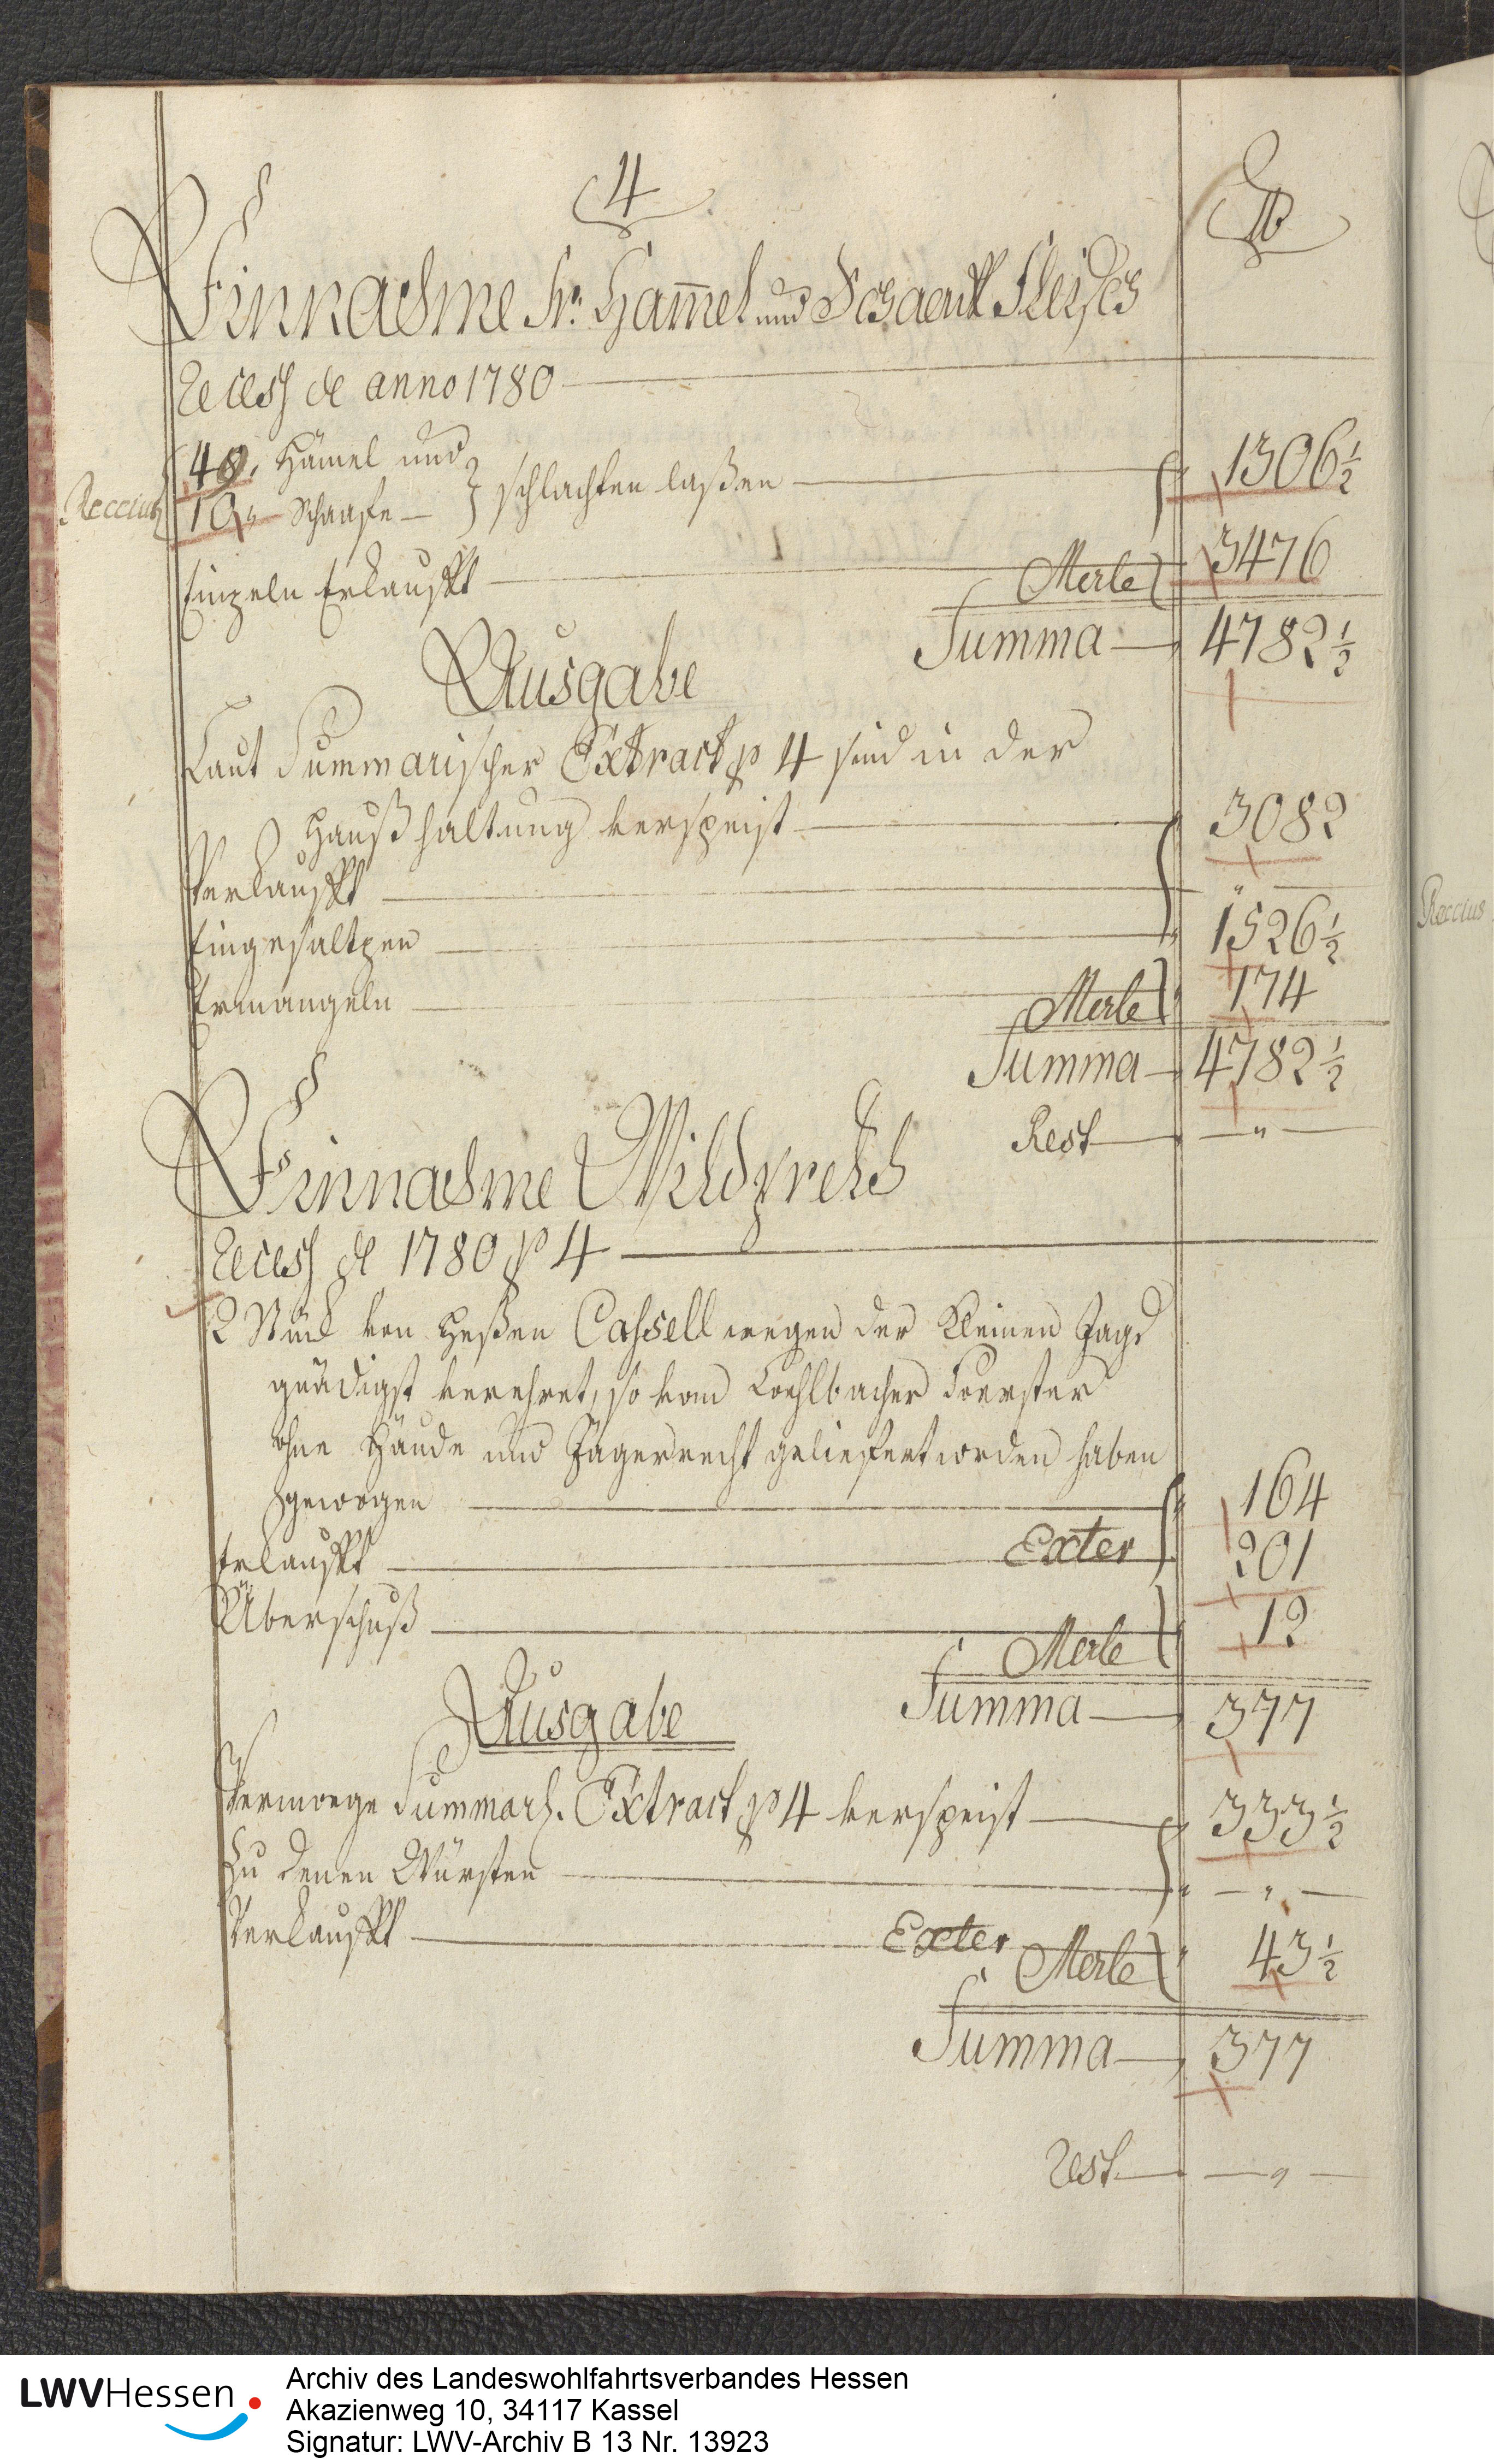 4
lb
Einnahme An Hammel und Schaaf Fleisch
Recess de anno 1780
48. Hämel und
Reccius 10 " Schaafe } schlachten laßen 1306 1/2
Einzeln Erkaufft Merle 3476
Summa 4782 1/2
Ausgabe
Laut Summarischer Extract p 4 sind in der
Haußhaltung verspeist 3082
Verkaufft "
Eingesaltzen 1526 1/2
Ermangeln Merle 174
Summa 4782 1/2
Rest "
Einnahme Wildpreth
Recess de 1780 p 4
2 Stück von Heßen Cassell wegen der Kleinen Jagd
gnädigst verehret, so vom Loehlbacher Foerster
ohne Häude und Jägerrecht geliefert worden haben
gewogen 164
Erkaufft Exter 201
Überschuß Merle 12
Summa 377
Ausgabe
Vermoege Summarl. Extract p 4 verspeist 333 1/2
Zu denen Würsten "
Verkaufft Exter Merle 43 1/2
Summa 377
Rest "
Reccius
LWVHessen
Archiv des Landeswohlfahrtsverbandes Hessen
Akazienweg 10, 34117 Kassel
Signatur: LWV-Archiv B 13 Nr. 13923